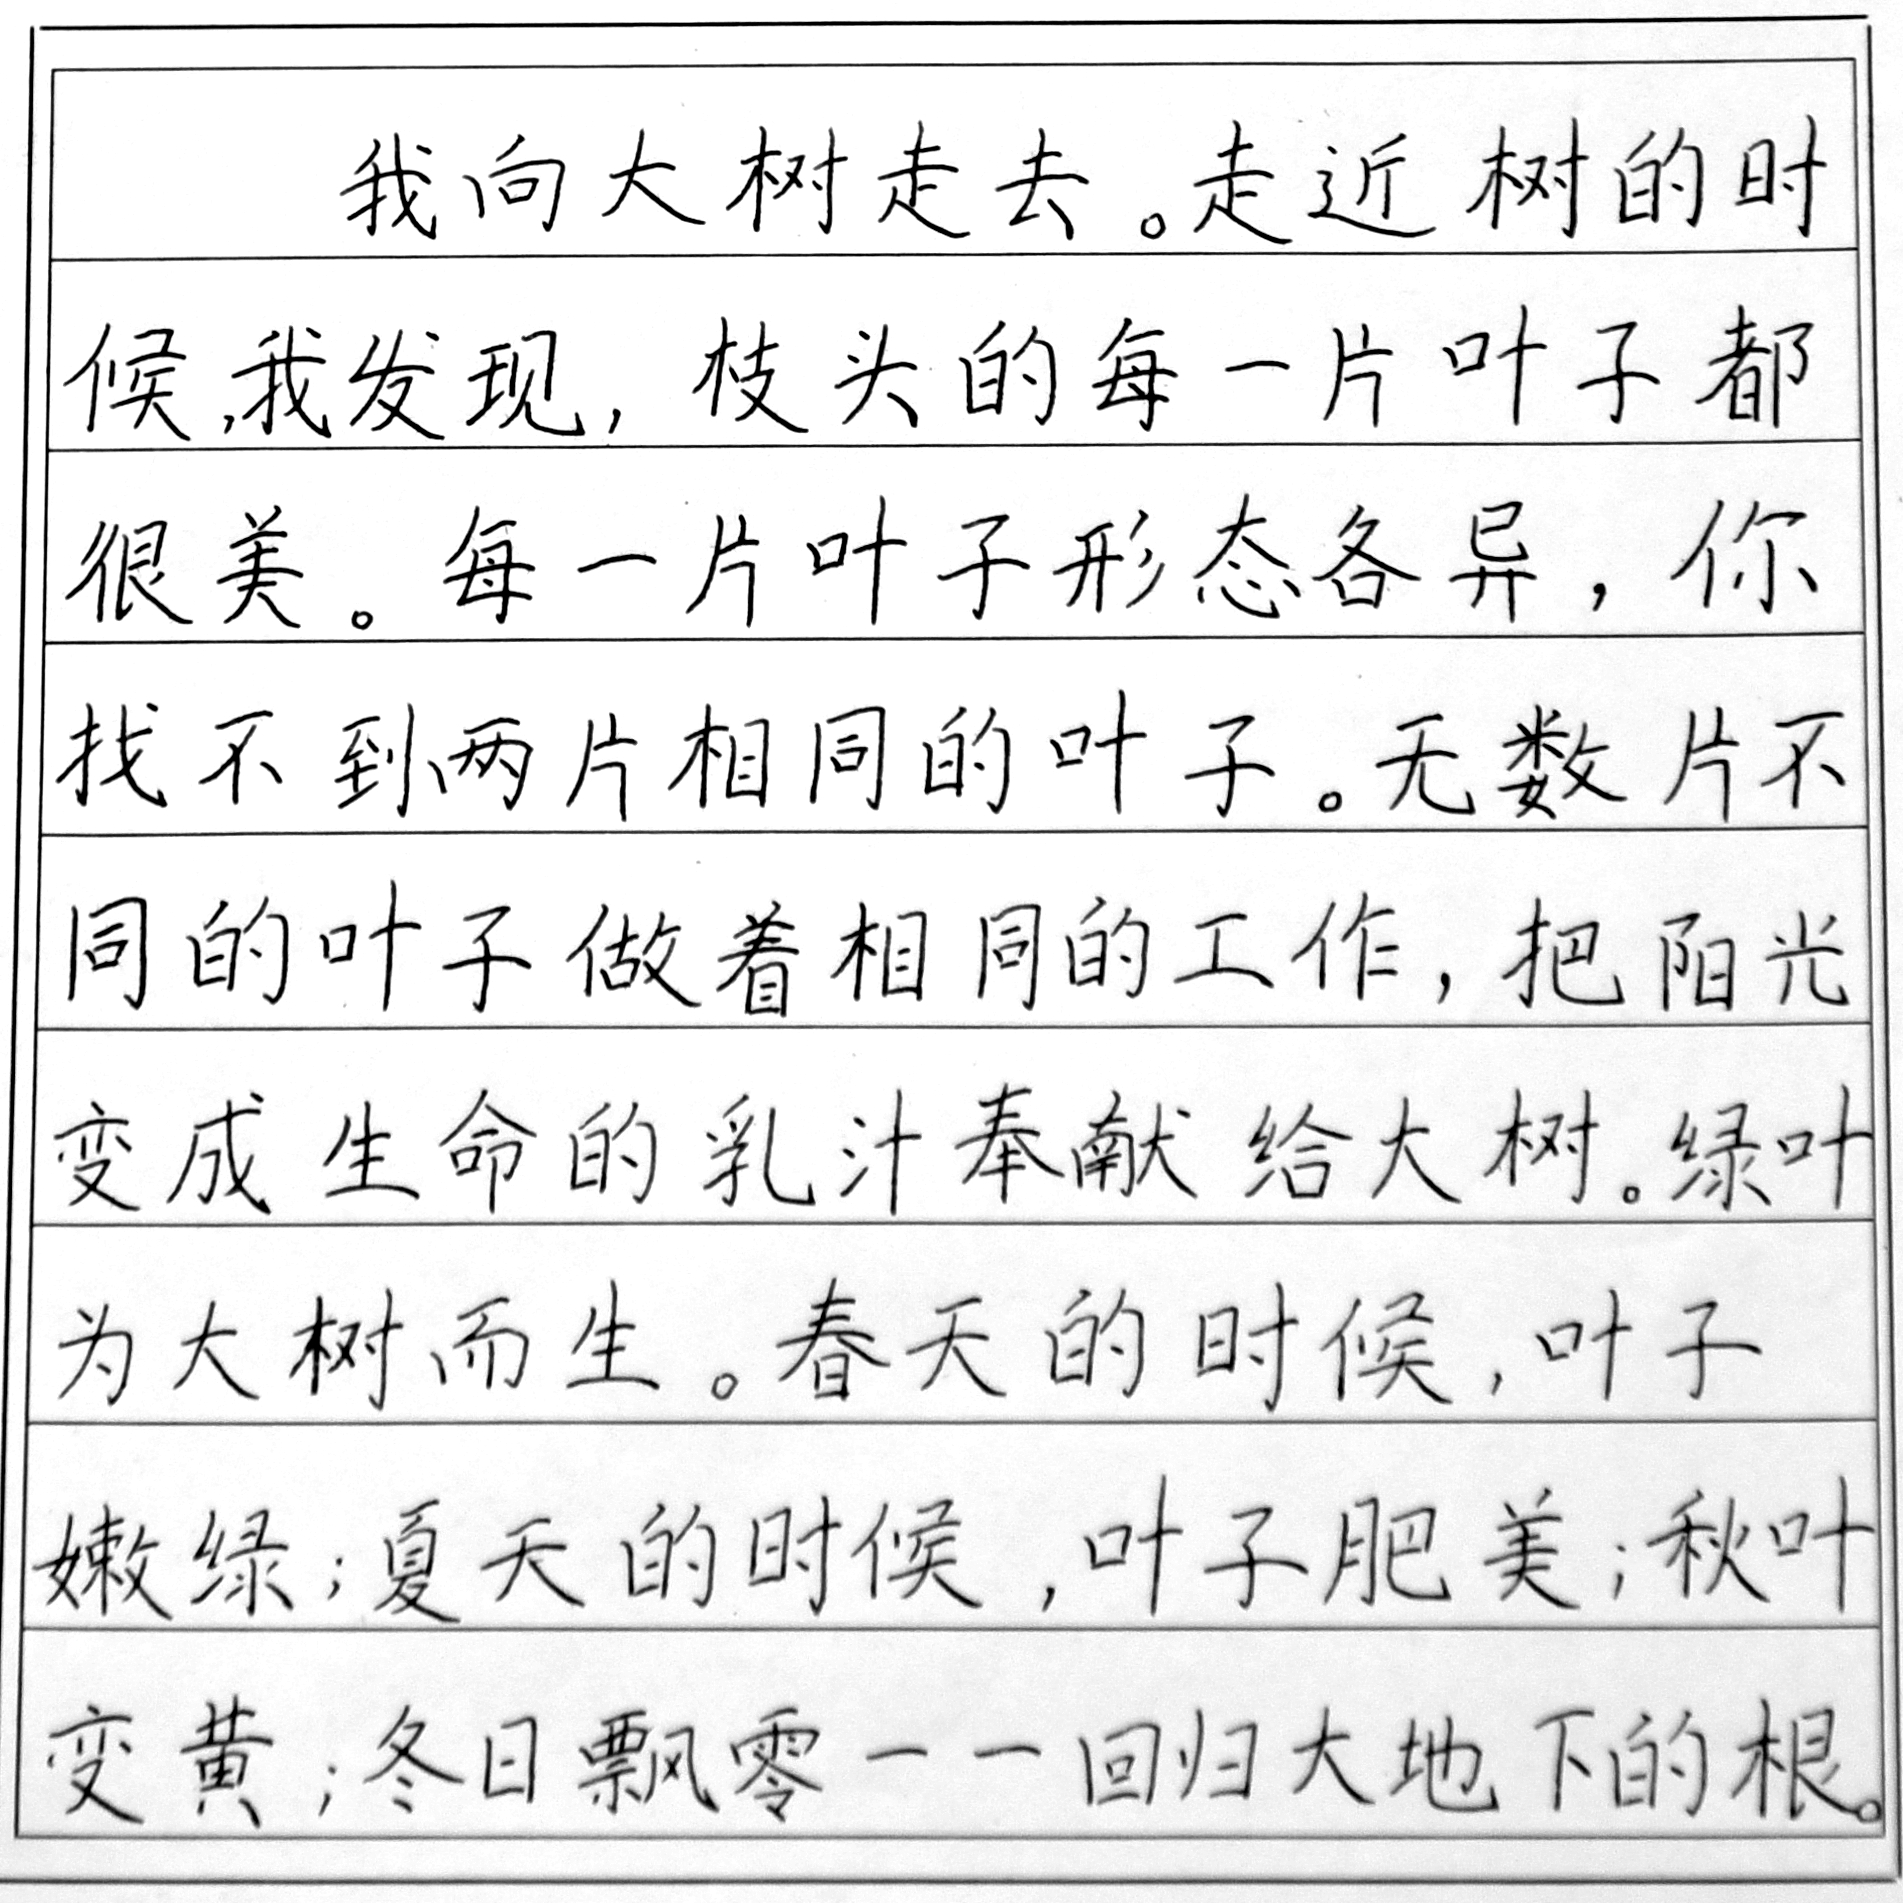 我向大树走去。走近树的时
候,我发现,枝头的每一片叶子都
很美。每一片叶子形态各异,你
找不到两片相同的叶子。无数片不
同的叶子做着相同的工作,把阳光
变成生命的乳汁奉献给大树。绿叶
为大树而生。春天的时候,叶子
嫩绿;夏天的时候,叶子肥美;秋叶
变黄;冬日飘零——回归大地下的根。